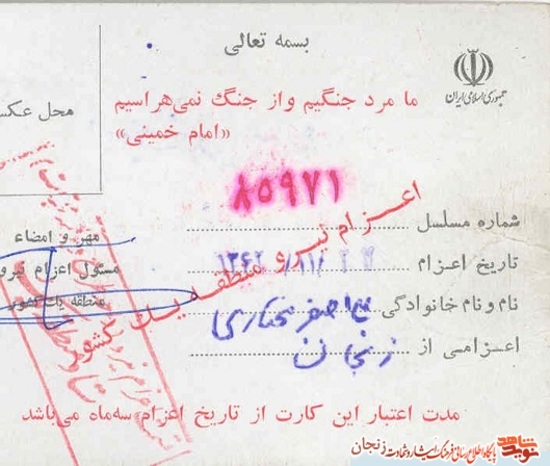 بسمه تعالی
جمهوری اسلامی ایران
ما مرد جنگیم و از جنگ نمی‌هراسیم
«امام خمینی»
محل عکس
۸۵۹۷۱
شماره مسلسل
تاریخ اعزام ۱۳۶۲/۱۱/۲۲
نام و نام خانوادگی اصغر مختاری
اعزامی از زنجان
مهر و امضاء
مسئول اعزام نیرو
منطقه یک کشور
اعزام نیرو منطقه یک کشور
مدت اعتبار این کارت از تاریخ اعزام سه ماه می‌باشد
نوید شاهد
پایگاه اطلاع رسانی فرهنگ ایثار و شهادت زنجان